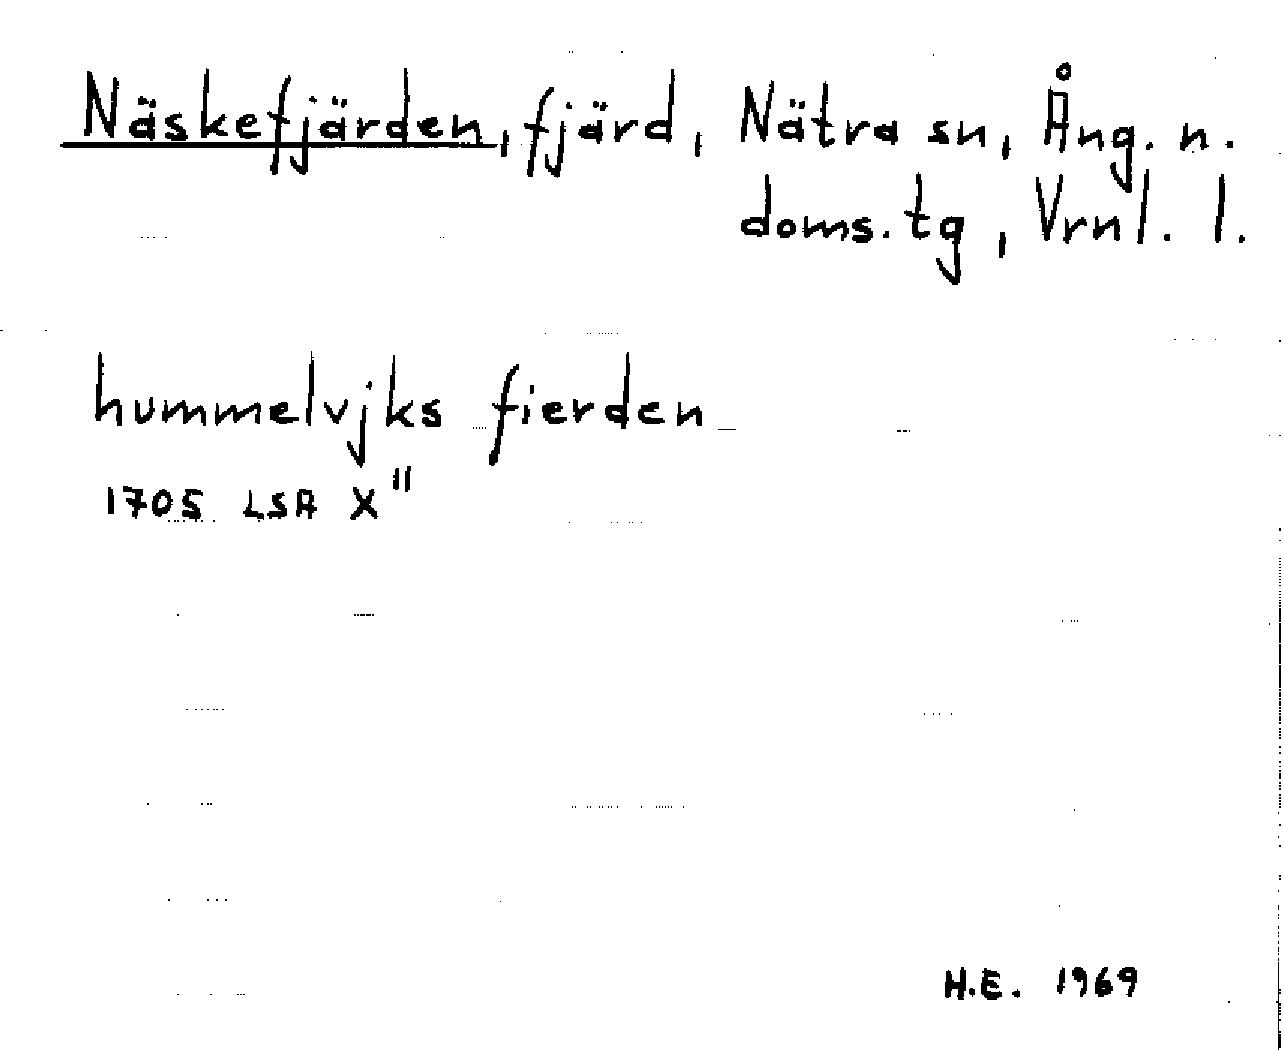 Näskefjärden, fjärd, Nätra sn, Ång. n.
doms.tg, Vrnl. l.
hummelvjks fierden
1705 LSA X"
H.E. 1969